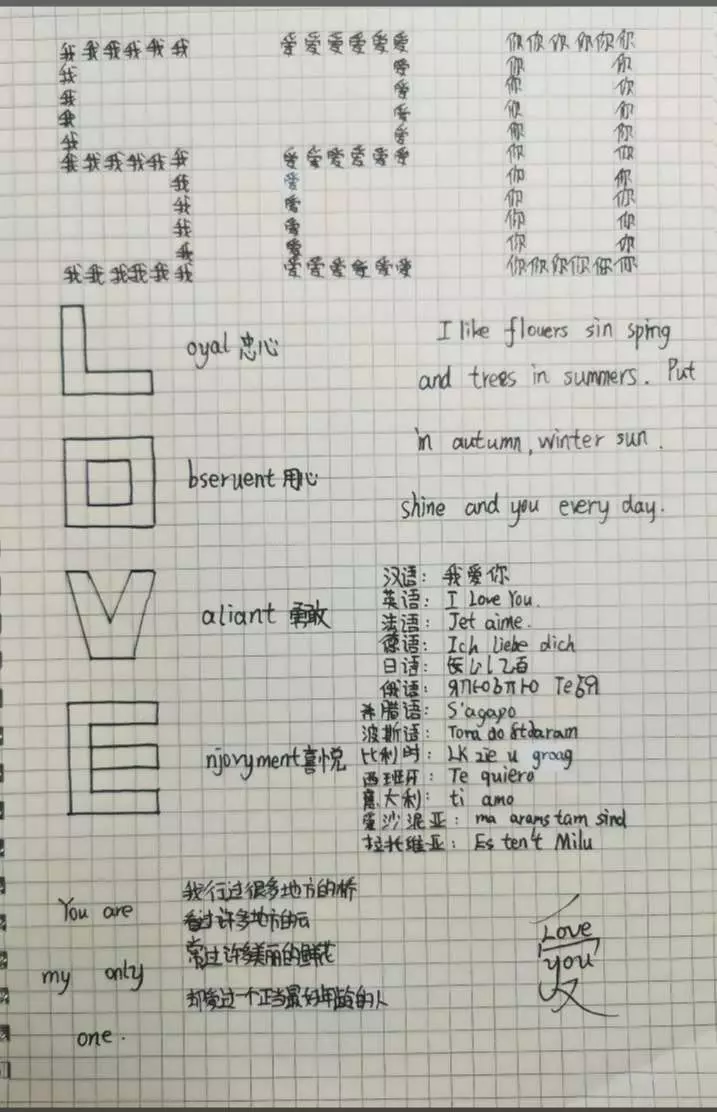 我我我我我我 爱爱爱爱爱爱 你你你你你你
我 爱 你 你
我 爱 你 你
我 爱 你 你
我 爱 你 你
我我我我我我 爱爱爱爱爱爱 你 你
我 爱 你 你
我 爱 你 你
我 爱 你 你
我 爱 你 你
我我我我我我 爱爱爱爱爱爱 你你你你你你
Loyal 忠心
I like flowers sin sping
and trees in summers. Put
in autumn, winter sun.
shine and you every day.
Obseruent 用心
Valiant 勇敢
Enjoryment 喜悦
汉语: 我爱你
英语: I Love You.
法语: Jet aime.
德语: Ich liebe dich
日语:
俄语: ЯПЮбПЮ Тебя
希腊语: S'agapo
波斯语: Tora do stdaram
比利时: LK zie u graag
西班牙: Te quiero
意大利: ti amo
爱沙泥亚: ma arams tam sind
拉托维亚: Es ten't Milu
You are
my only
one.
我行过很多地方的桥
看过许多地方的云
常过许多美丽的鲜花
却爱过一个正当最好年龄的人
Love
you